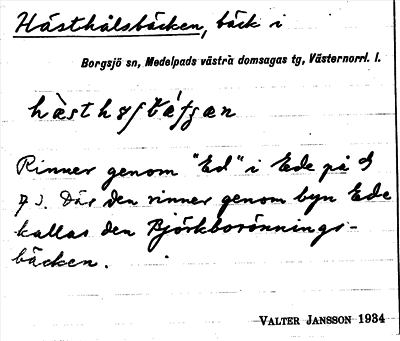 Hästhålsbäcken, bäck i
Borgsjö sn, Medelpads västra domsagas tg, Västernorrl. l.
Rinner genom "Ed" i Ede på
Där den rinner genom byn Ede
kallas den Björkborönnings-
bäcken.
VALTER JANSSON 1934